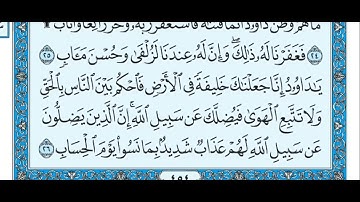 مَّا هُمْ وَظَنَّ دَاوُۥدُ أَنَّمَا فَتَنَّٰهُ فَٱسْتَغْفَرَ رَبَّهُۥ وَخَرَّ رَاكِعًا وَأَنَابَ
۩ ٢٤ فَغَفَرْنَا لَهُۥ ذَٰلِكَ ۖ وَإِنَّ لَهُۥ عِندَنَا لَزُلْفَىٰ وَحُسْنَ مَـَٔابٍ ٢٥
يَٰدَاوُۥدُ إِنَّا جَعَلْنَٰكَ خَلِيفَةً فِى ٱلْأَرْضِ فَٱحْكُم بَيْنَ ٱلنَّاسِ بِٱلْحَقِّ
وَلَا تَتَّبِعِ ٱلْهَوَىٰ فَيُضِلَّكَ عَن سَبِيلِ ٱللَّهِ ۚ إِنَّ ٱلَّذِينَ يَضِلُّونَ
عَن سَبِيلِ ٱللَّهِ لَهُمْ عَذَابٌ شَدِيدٌۢ بِمَا نَسُوا۟ يَوْمَ ٱلْحِسَابِ ٢٦
٤٥٤